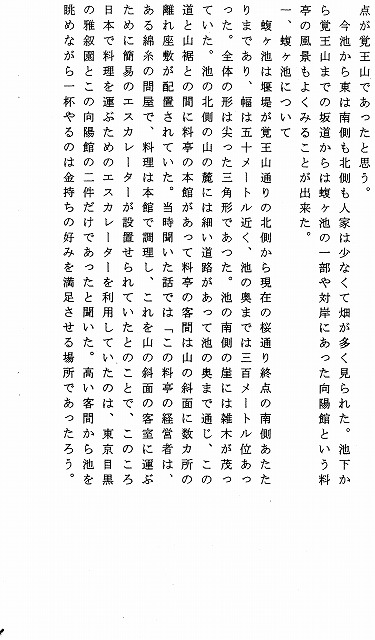 点が覚王山であったと思う。
今池から東は南側も北側も人家は少なくて畑が多く見られた。池下か
ら覚王山までの坂道からは蝮ヶ池の一部や対岸にあった向陽館という料
亭の風景もよくみることが出来た。
一、蝮ヶ池について
蝮ヶ池は堰堤が覚王山通りの北側から現在の桜通り終点の南側あたた
りまであり、幅は五十メートル近く、池の奥までは三百メートル位あっ
った。全体の形は尖った三角形であつた。池の南側の崖には雑木が茂っ
ていた。池の北側の山の麓には細い道路があって池の奥まで通じ、この
道と山裾との間に料亭の本館があって料亭の客間は山の斜面に数カ所の
離れ座敷が配置されていた。当時聞いた話では「この料亭の経営者は、
ある綿糸の問屋で、料理は本館で調理し、これを山の斜面の客室に運ぶ
ために簡易のエスカレーターが設置せられていたとのことで、このころ
日本で料理を運ぶためのエスカレーターを利用していたのは、東京目黒
の雅叙園とこの向陽館の二件だけであったと聞いた。高い客間から池を
眺めながら一杯やるのは金持ちの好みを満足させる場所であったろう。